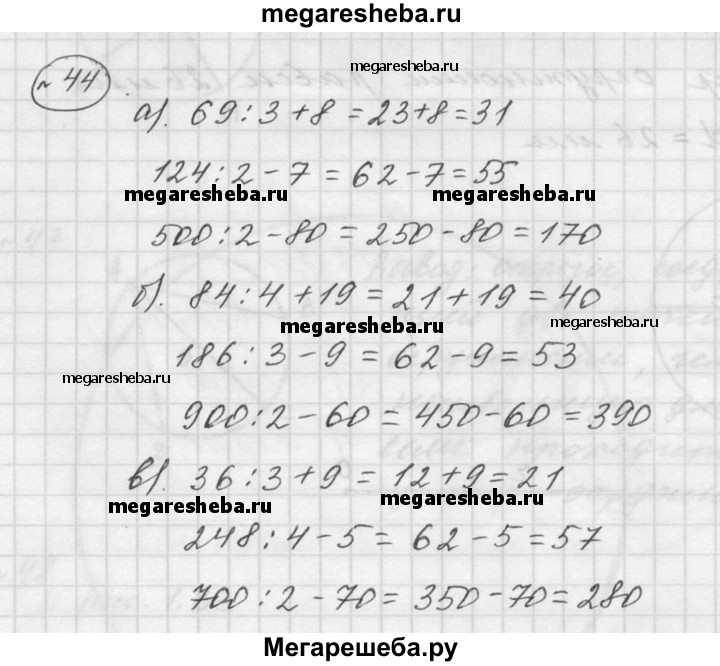 megaresheba.ru
№ 44
megaresheba.ru
а). 69 : 3 + 8 = 23 + 8 = 31
124 : 2 - 7 = 62 - 7 = 55
megaresheba.ru megaresheba.ru
500 : 2 - 80 = 250 - 80 = 170
б). 84 : 4 + 19 = 21 + 19 = 40
megaresheba.ru megaresheba.ru
186 : 3 - 9 = 62 - 9 = 53
megaresheba.ru
900 : 2 - 60 = 450 - 60 = 390
в). 36 : 3 + 9 = 12 + 9 = 21
megaresheba.ru megaresheba.ru
248 : 4 - 5 = 62 - 5 = 57
700 : 2 - 70 = 350 - 70 = 280
Мегарешеба.ру